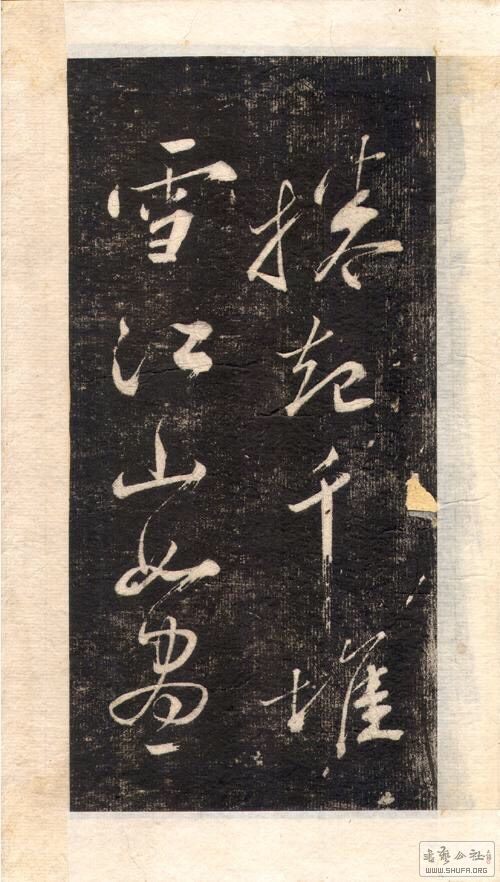 捲起千堆
雪江山如畫
書藝公社
WWW.SHUFA.ORG